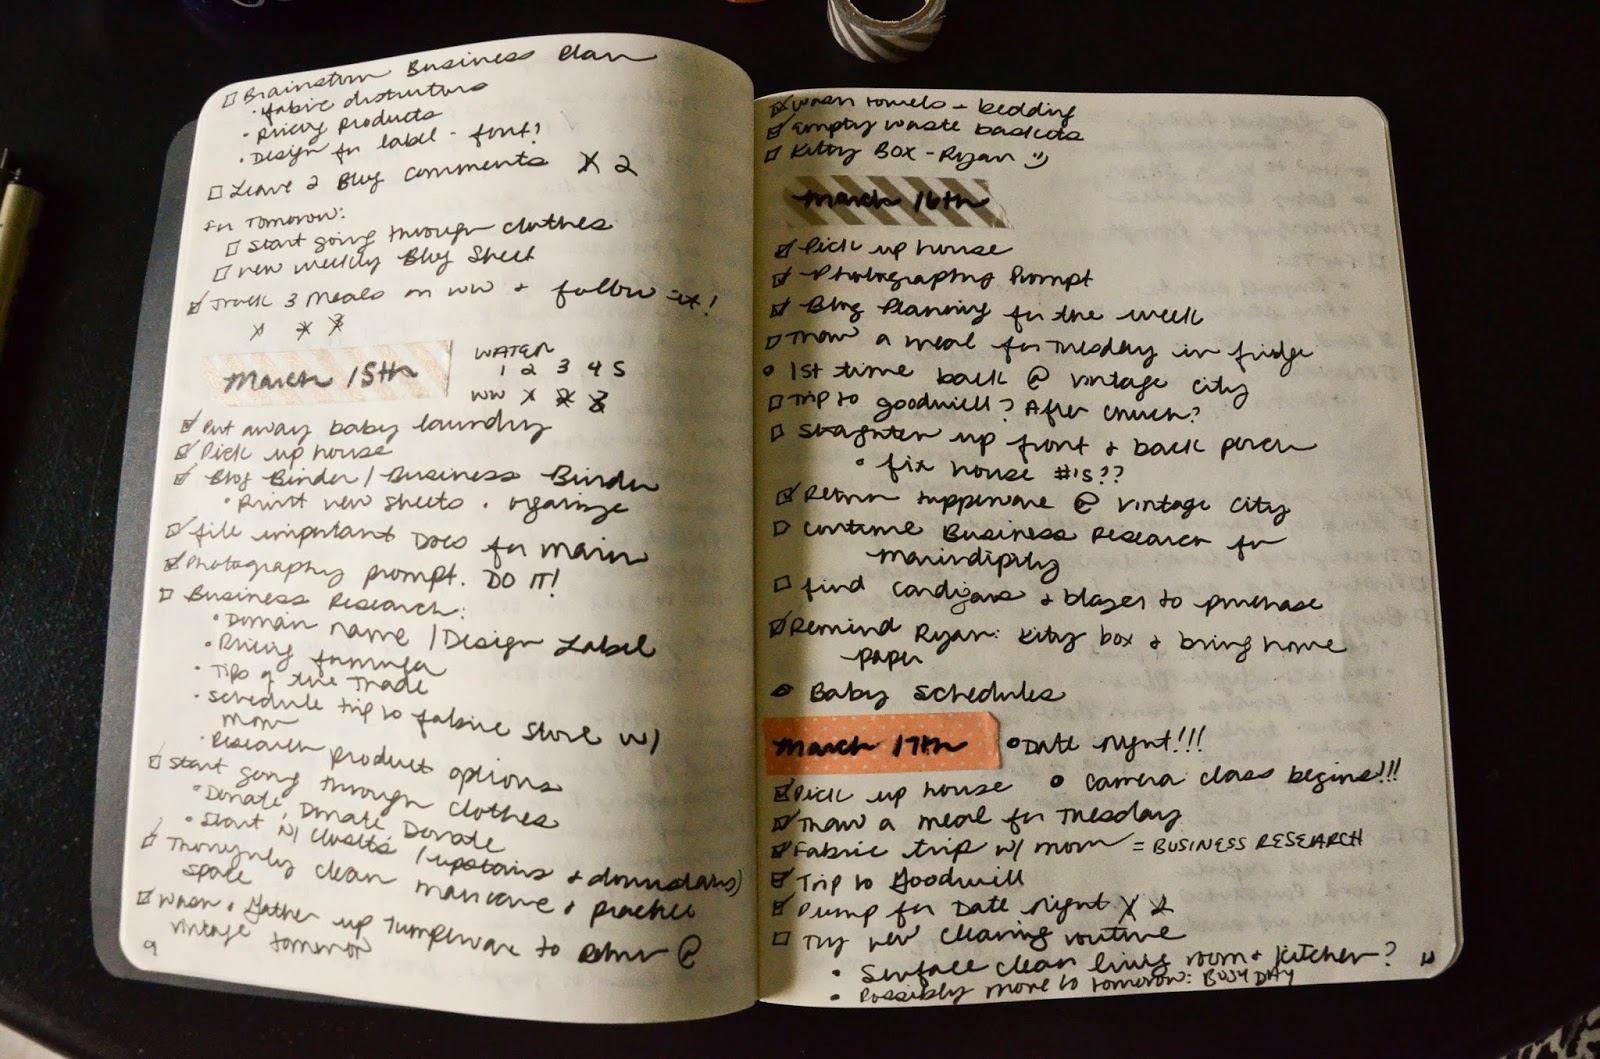 Brainstorm Business Plan
• fabric distributors
• Pricing products
• Design for label - font?
Leave 2 Blog comments X 2
For Tomorrow:
Start going through clothes
new weekly Blog Sheet
Track 3 meals on WW + follow it!
X X 3
March 15th
WATER
1 2 3 4 5
WW X 2 3
Put away baby laundry
Pick up house
Blog Binder / Business Binder
• Print new sheets • organize
file important Docs for
Photography prompt. DO IT!
Business Research:
• Domain name / Design Label
• Pricing formula
• Tips of the Trade
• schedule trip to fabric store w/
mom
• Research product options
Start going through clothes
• Donate, Donate, Donate
• Start w/ closets (upstairs + downstairs)
Thoroughly clean manicure + practice
space
Wash + Gather up Tupperware to return @
vintage tomorrow
9
Wash towels + bedding
Empty waste baskets
Kitty Box - Ryan :)
March 16th
Pick up house
Photography Prompt
Blog Planning for the week
Thaw a meal for Tuesday in fridge
• 1st time back @ vintage city
Trip to goodwill? After church?
Straghten up front + back porch
• fix house #'s??
Return tupperware @ vintage city
Continue Business Research for
find cardigans + blazer to purchase
Remind Ryan: Kitty box + bring home
paper
• Baby Schedules
March 17th • Date night!!!
Pick up house • camera class begins!!!
Thaw a meal for Tuesday
Fabric trip w/ mom = BUSINESS RESEARCH
Trip to Goodwill
Pump for Date Night X 2
Try new cleaning routine
• Surface clean living room + kitchen?
• Possibly move to tomorrow: BUSY DAY
10